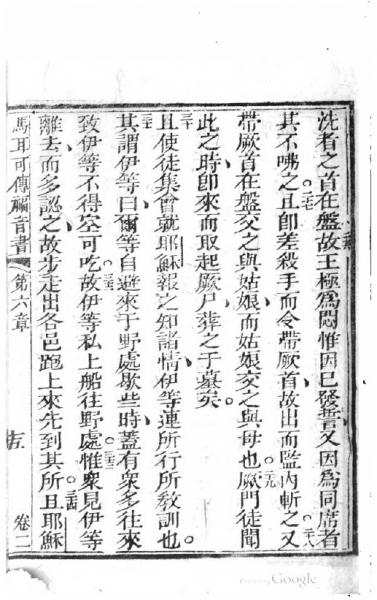 洗者之首在盤故王極為悶惟因已發誓又因為同席者
其不咈之二七且即差殺手而令帶厥首故出而監內斬之二八又
帶厥首在盤交之與姑娘而姑娘交之與母也二九厥門徒聞
此之時即來而取起厥尸葬之于墓矣。
三十且使徒集會就耶穌報之知諸情伊等連所行所教訓也。
三一其謂伊等曰爾等自避來于野處歇些時蓋有衆多往來
致伊等不得空可吃三二故伊等私上船往野處三三惟衆見伊等
離去而多認之故步走出各邑跑上來先到其所三四且耶穌
馬耳可傳福音書 第六章 十五 卷二
Google